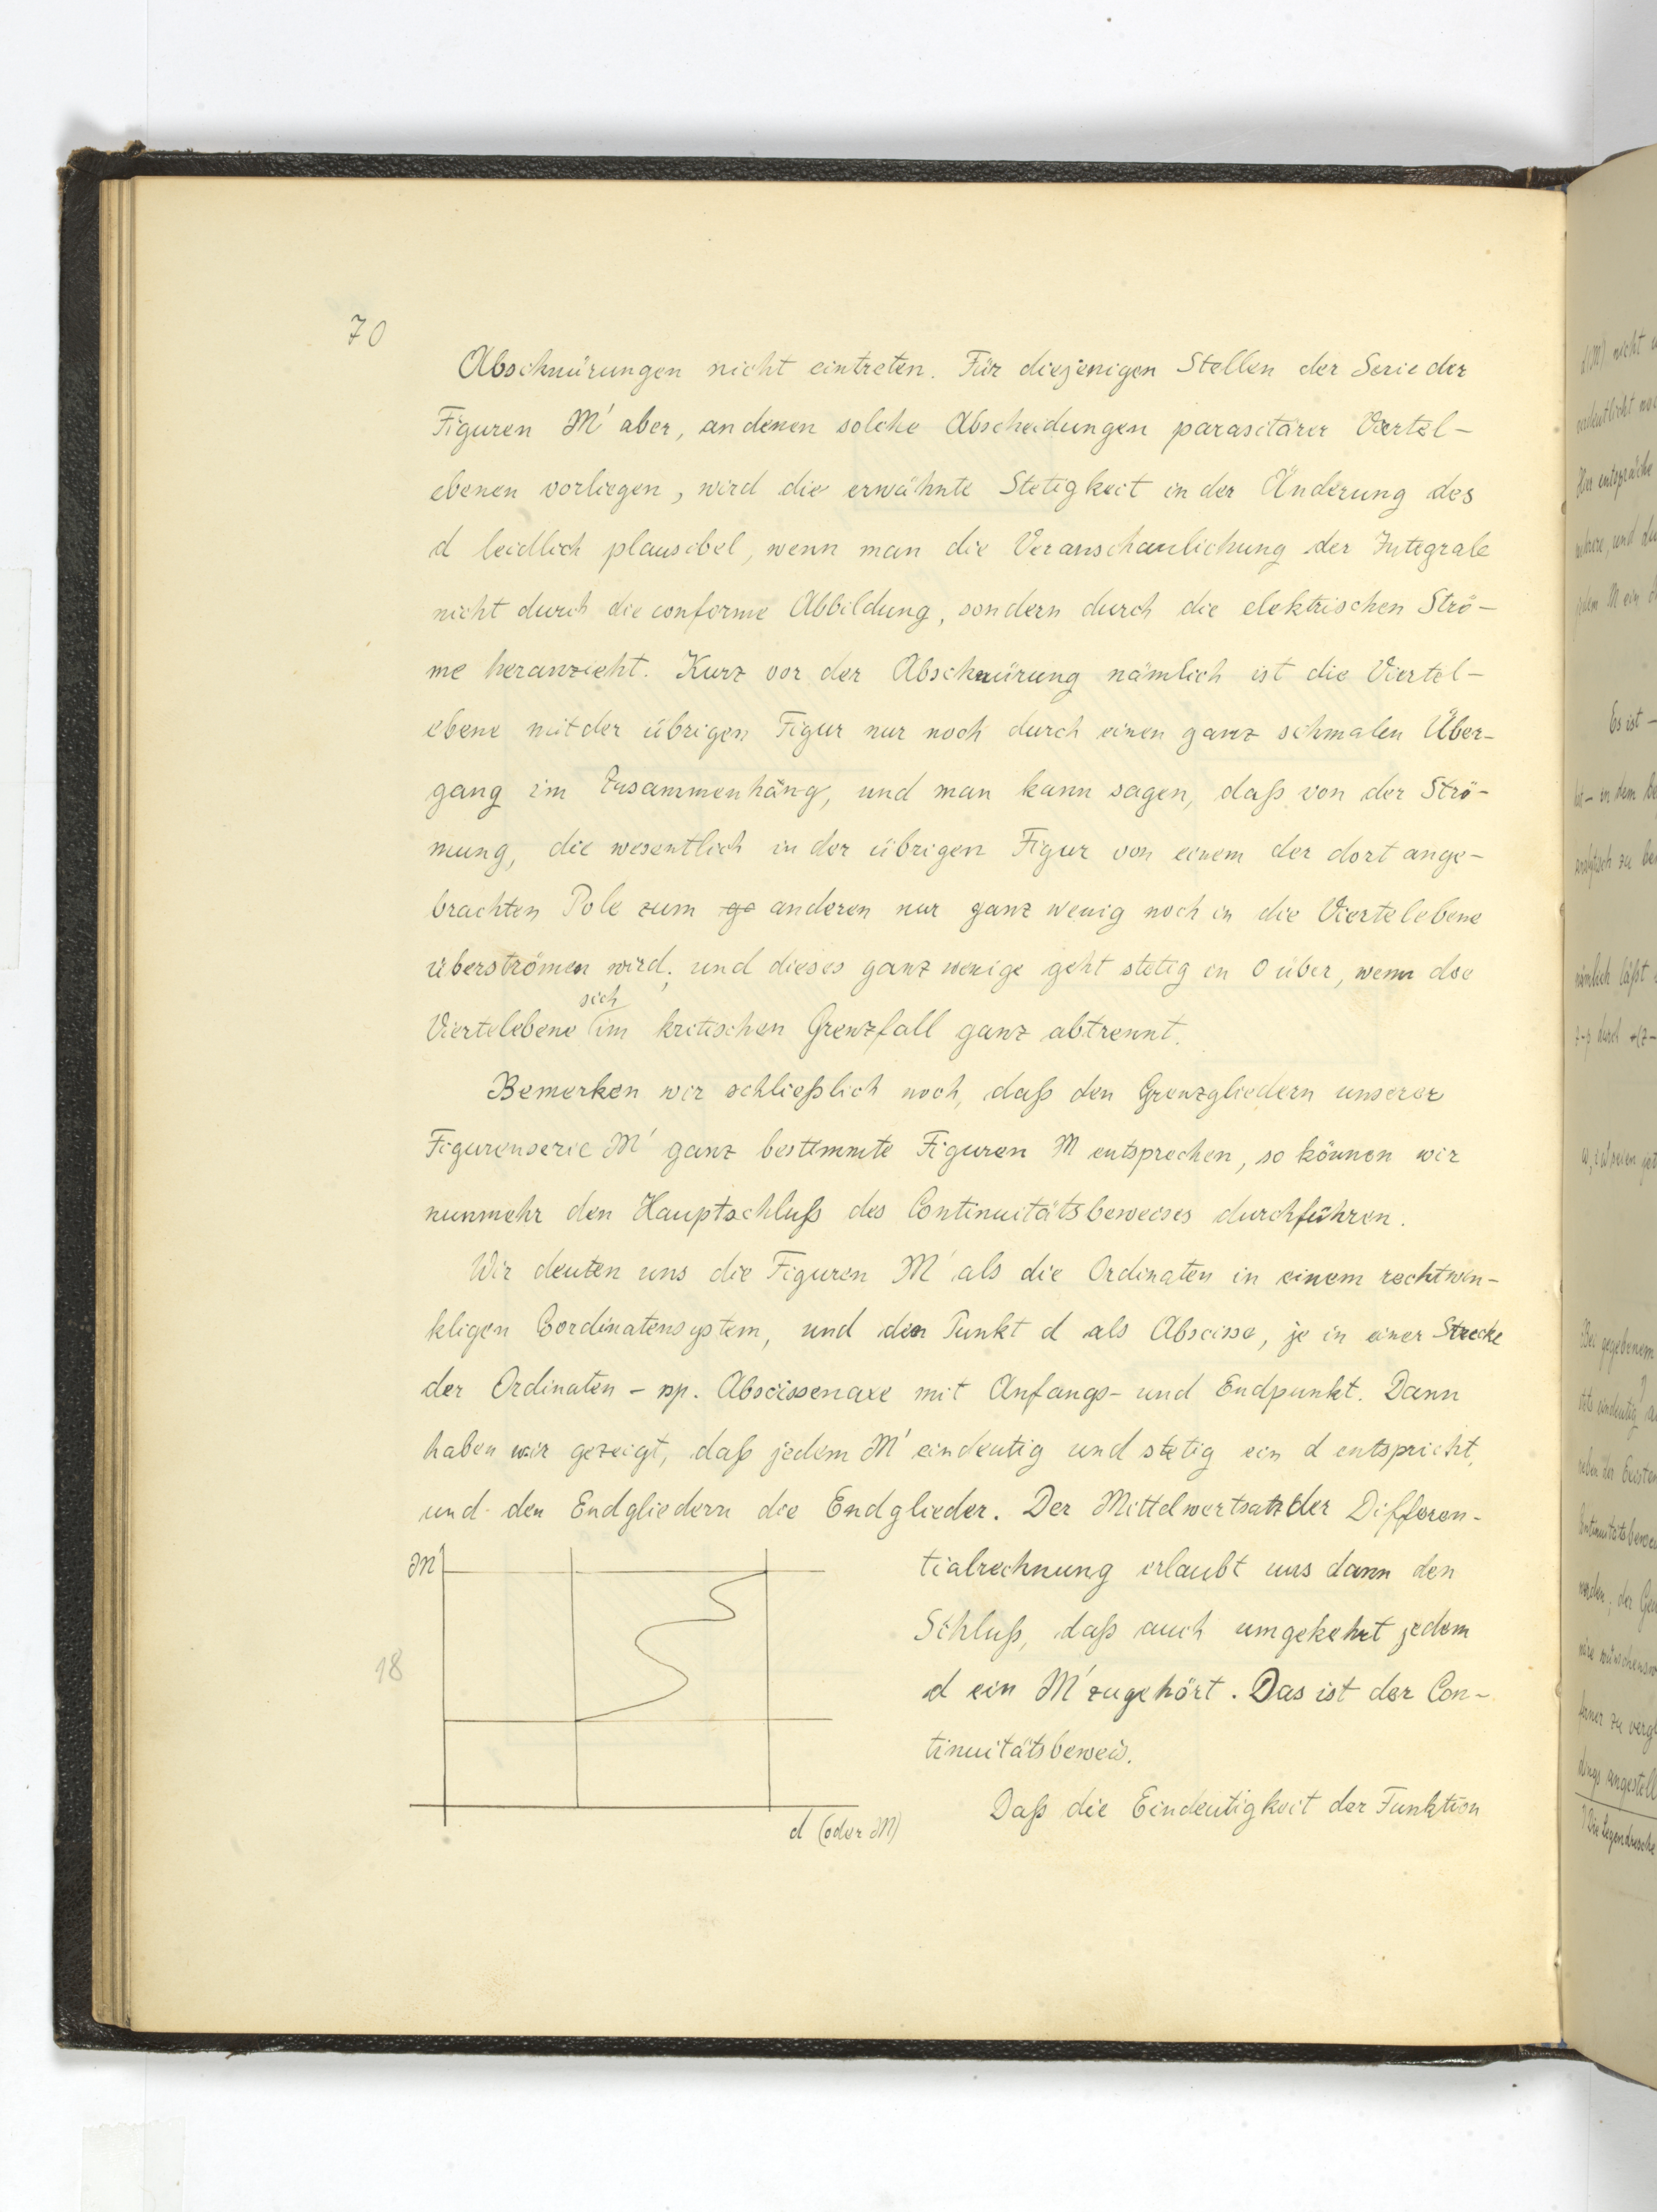 70
Abschnürungen nicht eintreten. Für diejenigen Stellen der Serie der
Figuren M' aber, an denen solche Abscheidungen parasitärer Viertel-
ebenen vorliegen, wird die erwähnte Stetigkeit in der Änderung des
d leidlich plausibel, wenn man die Veranschaulichung der Integrale
nicht durch die conforme Abbildung, sondern durch die elektrischen Strö-
me heranzieht. Kurz vor der Abschnürung nämlich ist die Viertel-
ebene mit der übrigen Figur nur noch durch einen ganz schmalen Über-
gang im Zusammenhang, und man kann sagen, daß von der Strö-
mung, die wesentlich in der übrigen Figur von einem der dort ange-
brachten Pole zum ge anderen nur ganz wenig noch in die Viertelebene
überströmen wird; und dieses ganz wenige geht stetig in 0 über, wenn die
Viertelebene sich im kritischen Grenzfall ganz abtrennt.
Bemerken wir schließlich noch, daß den Grenzgliedern unserer
Figurenserie M' ganz bestimmte Figuren M entsprechen, so können wir
nunmehr den Hauptschluß des Continuitätsbeweises durchführen.
Wir deuten uns die Figuren M' als die Ordinaten in einem rechtwin-
kligen Coordinatensystem, und den Punkt d als Abscisse, je in einer Strecke
der Ordinaten - rsp. Abscissenaxe mit Anfangs- und Endpunkt. Dann
haben wir gezeigt, daß jedem M' eindeutig und stetig ein d entspricht,
und den Endgliedern die Endglieder. Der Mittelwertsatz der Differen-
tialrechnung erlaubt uns dann den
Schluß, daß auch umgekehrt jedem
d ein M' zugehört. Das ist der Con-
tinuitätsbeweis.
Daß die Eindeutigkeit der Funktion
M'
18
d (oder M)